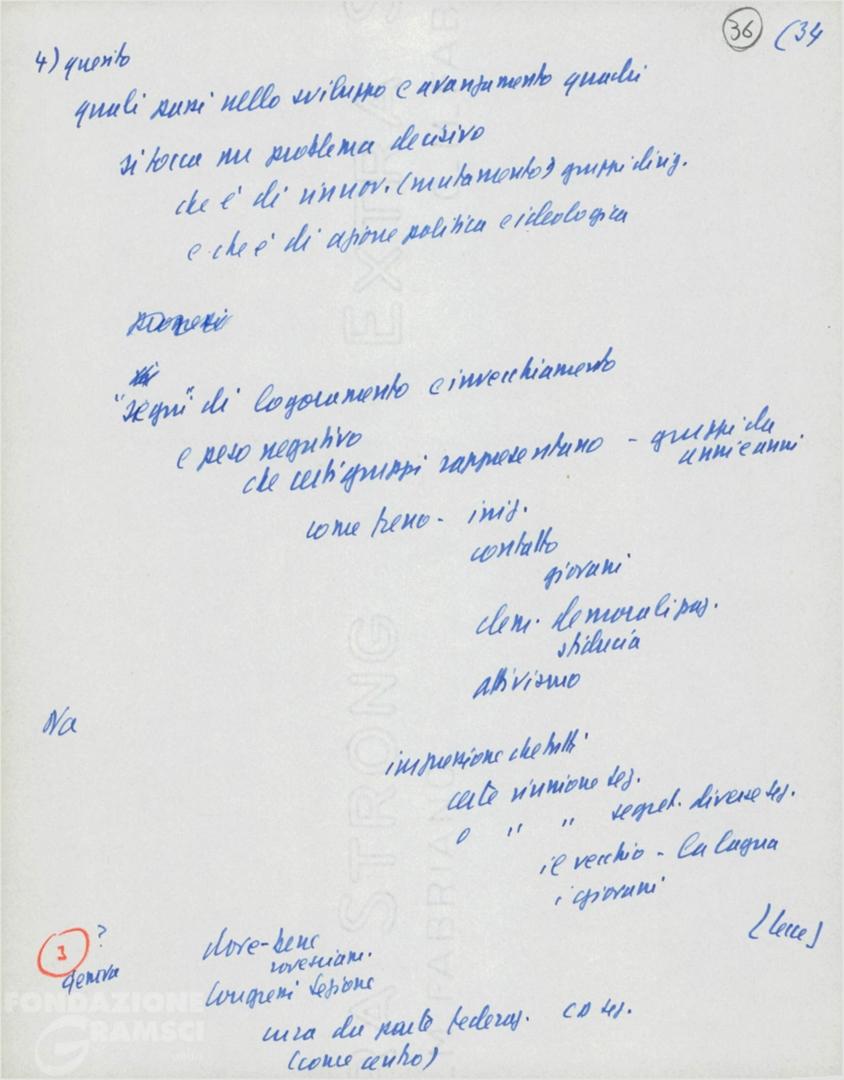 36 (34
4) quesito
quali passi nello sviluppo e avanzamento quadri
si tocca un problema decisivo
che è di rinnov. (mutamento) gruppi dirig.
e che è di azione politica e ideologica
"segni" di logoramento e invecchiamento
e peso negativo
che certi gruppi rappresentano - gruppi da
anni e anni
come freno - iniz.
contatto
giovani
elem. demoralizzaz.
sfiducia
attivismo
Na
impressione che tutti
certe riunione sez.
o " " segret. diverse sez.
il vecchio - la lagna
i giovani
[Lecce]
3 ?
Genova
dove - bene
rovesciam.
Congressi Sezione
cura da parte federaz. CD sez.
(come centro)
FONDAZIONE
GRAMSCI
EXTRA STRONG
FABRIANO